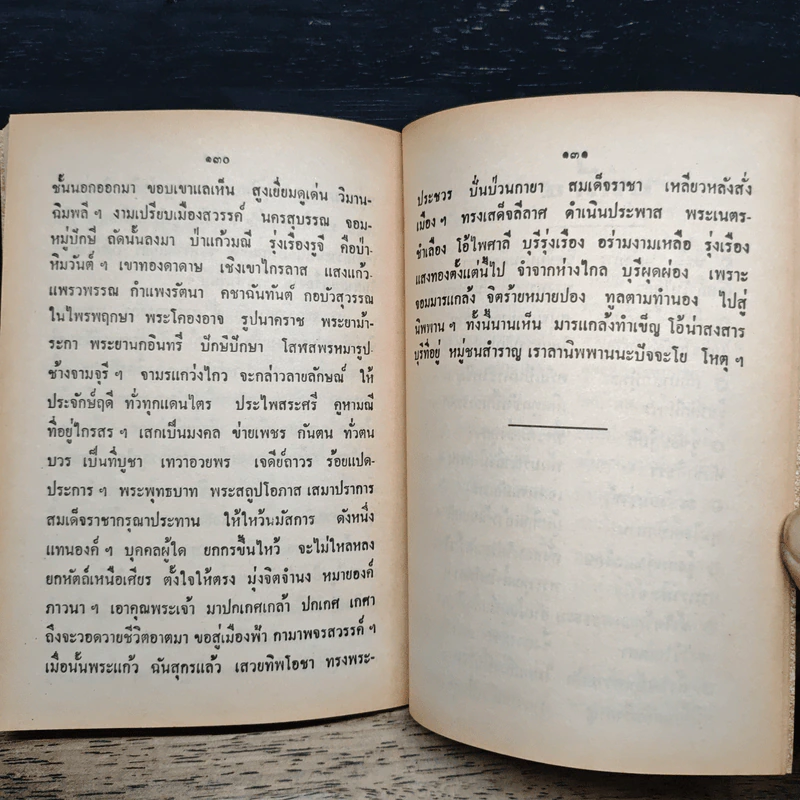 ๑๓๐
ชั้นนอกออกมา ขอบเขาแลเห็น สูงเยี่ยมดูเด่น วิมาน-
ฉิมพลี ฯ งามเปรียบเมืองสวรรค์ นครสุบรรณ จอม-
หมู่ปักษี ถัดนั้นลงมา ป่าแก้วมณี รุ่งเรืองรูจี คือป่า-
หิมวันต์ ฯ เขาทองดาดาษ เชิงเขาไกรลาส แสงแก้ว-
แพรวพรรณ กำแพงรัตนา คชาฉันทันต์ กอบัวสุวรรณ
ในไพรพฤกษา พระโคองอาจ รูปนาคราช พระยาม้า-
ระกา พระยานกอินทรี ปักษีปักษา โสฬสพรหมารูป-
ช้างจามจุรี ฯ จามรแกว่งไกว จะกล่าวลายลักษณ์ ให้
ประจักษ์ฤดี ทั่วทุกแดนไตร ประไพสระศรี คูหามณี
ที่อยู่ไกรสร ฯ เสกเป็นมงคล ข่ายเพชร กันตน ทั่วตน
บวร เป็นที่บูชา เทวาอวยพร เจดีย์ถาวร ร้อยแปด-
ประการ ฯ พระพุทธบาท พระสถูปโอภาส เสมาปราการ
สมเด็จราชากรุณาประทาน ให้ไหว้นมัสการ ดังหนึ่ง
แทนองค์ ฯ บุคคลผู้ใด ยกกรขึ้นไหว้ จะไม่ไหลหลง
ยกหัตถ์เหนือเศียร ตั้งใจให้ตรง มุ่งจิตจำนง หมายองค์
ภาวนา ฯ เอาคุณพระเจ้า มาปกเกศเกล้า ปกเกศ เกศา
ถึงจะวอดวายชีวิตอาตมา ขอสู่เมืองฟ้า กามาพจรสวรรค์ ฯ
เมื่อนั้นพระแก้ว ฉันสุกรแล้ว เสวยทิพโอชา ทรงพระ-
๑๓๑
ประชวร ปั่นป่วนกายา สมเด็จราชา เหลียวหลังสั่ง
เมือง ฯ ทรงเสด็จลีลาศ ดำเนินประพาส พระเนตร-
ชำเลือง โอ้ไพศาลี บุรีรุ่งเรือง อร่ามงามเหลือ รุ่งเรือง
แสงทองตั้งแต่นี้ไป จำจากห่างไกล บุรีผุดผ่อง เพราะ
จอมมารแกล้ง จิตร้ายหมายปอง ทูลตามทำนอง ไปสู่
นิพพาน ฯ ทั้งนี้นานเห็น มารแกล้งทำเข็ญ โอ้น่าสงสาร
บุรีที่อยู่ หมู่ชนสำราญ เราลานิพพานนะปัจจะโย โหตุ ฯ